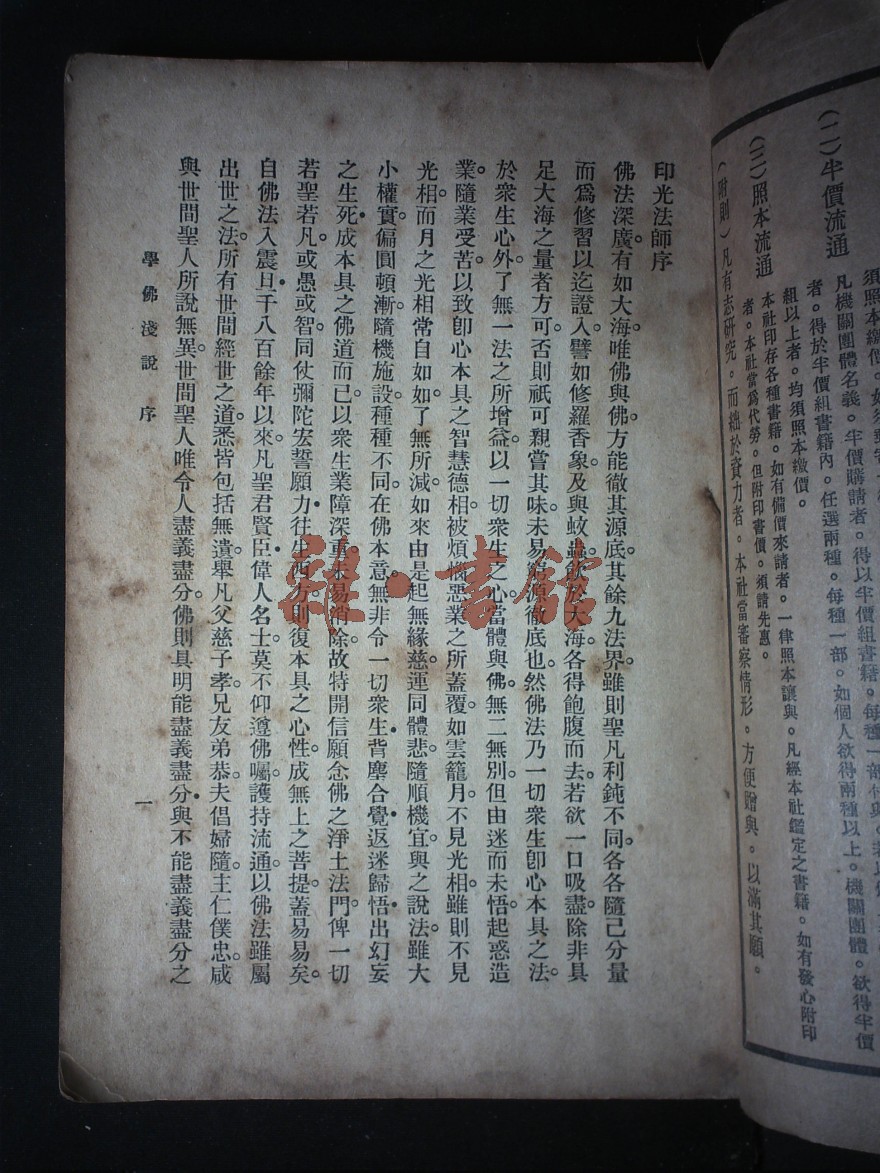 (二)半價流通
凡機關團體名義。半價購請者。得以半價組書籍。每種一部
者。得於半價組書籍內。任選兩種。每種一部。如個人欲得兩種以上。機關團體。欲得半價
組以上者。均須照本繳價。
(三)照本流通
本社印存各種書籍。如有備價來請者。一律照本讓與。凡經本社鑑定之書籍。如有發心附印
者。本社當爲代勞。但附印書價。須請先惠。
(附則)凡有志研究。而絀於資力者。本社當審察情形。方便贈與。以滿其願。
印光法師序
佛法深廣。有如大海。唯佛與佛。方能徹其源底。其餘九法界。雖則聖凡利鈍不同。各各隨己分量
而爲修習。以迄證入。譬如修羅香象。及與蚊蟲。飲於大海。各得飽腹而去。若欲一口吸盡。除非具
足大海之量者方可。否則祇可親嘗其味。未易窮源徹底也。然佛法乃一切衆生卽心本具之法。
於衆生心外。了無一法之所增益。以一切衆生之心。當體與佛無二無別。但由迷而未悟。起惑造
業。隨業受苦。以致卽心本具之智慧德相。被煩惱惡業之所蓋覆。如雲籠月。不見光相。雖則不見
光相。而月之光相常自如如。了無所減。如來由是起無緣慈。運同體悲。隨順機宜。與之說法。雖大
小權實。偏圓頓漸。隨機施設。種種不同。在佛本意。無非令一切衆生背塵合覺。返迷歸悟。出幻妄
之生死。成本具之佛道而已。以衆生業障深重。未易消除。故特開信願念佛之淨土法門。俾一切
若聖若凡。或愚或智。同仗彌陀宏誓願力。往生西方。則復本具之心性。成無上之菩提。蓋易易矣。
自佛法入震旦。千八百餘年以來。凡聖君賢臣。偉人名士。莫不仰遵佛囑。護持流通。以佛法雖屬
出世之法。所有世間經世之道。悉皆包括無遺。舉凡父慈子孝。兄友弟恭。夫倡婦隨。主仁僕忠。咸
與世間聖人所說無異。世間聖人。唯令人盡義盡分。佛則具明能盡義盡分。與不能盡義盡分之
學佛淺說 序
一
雜·書館